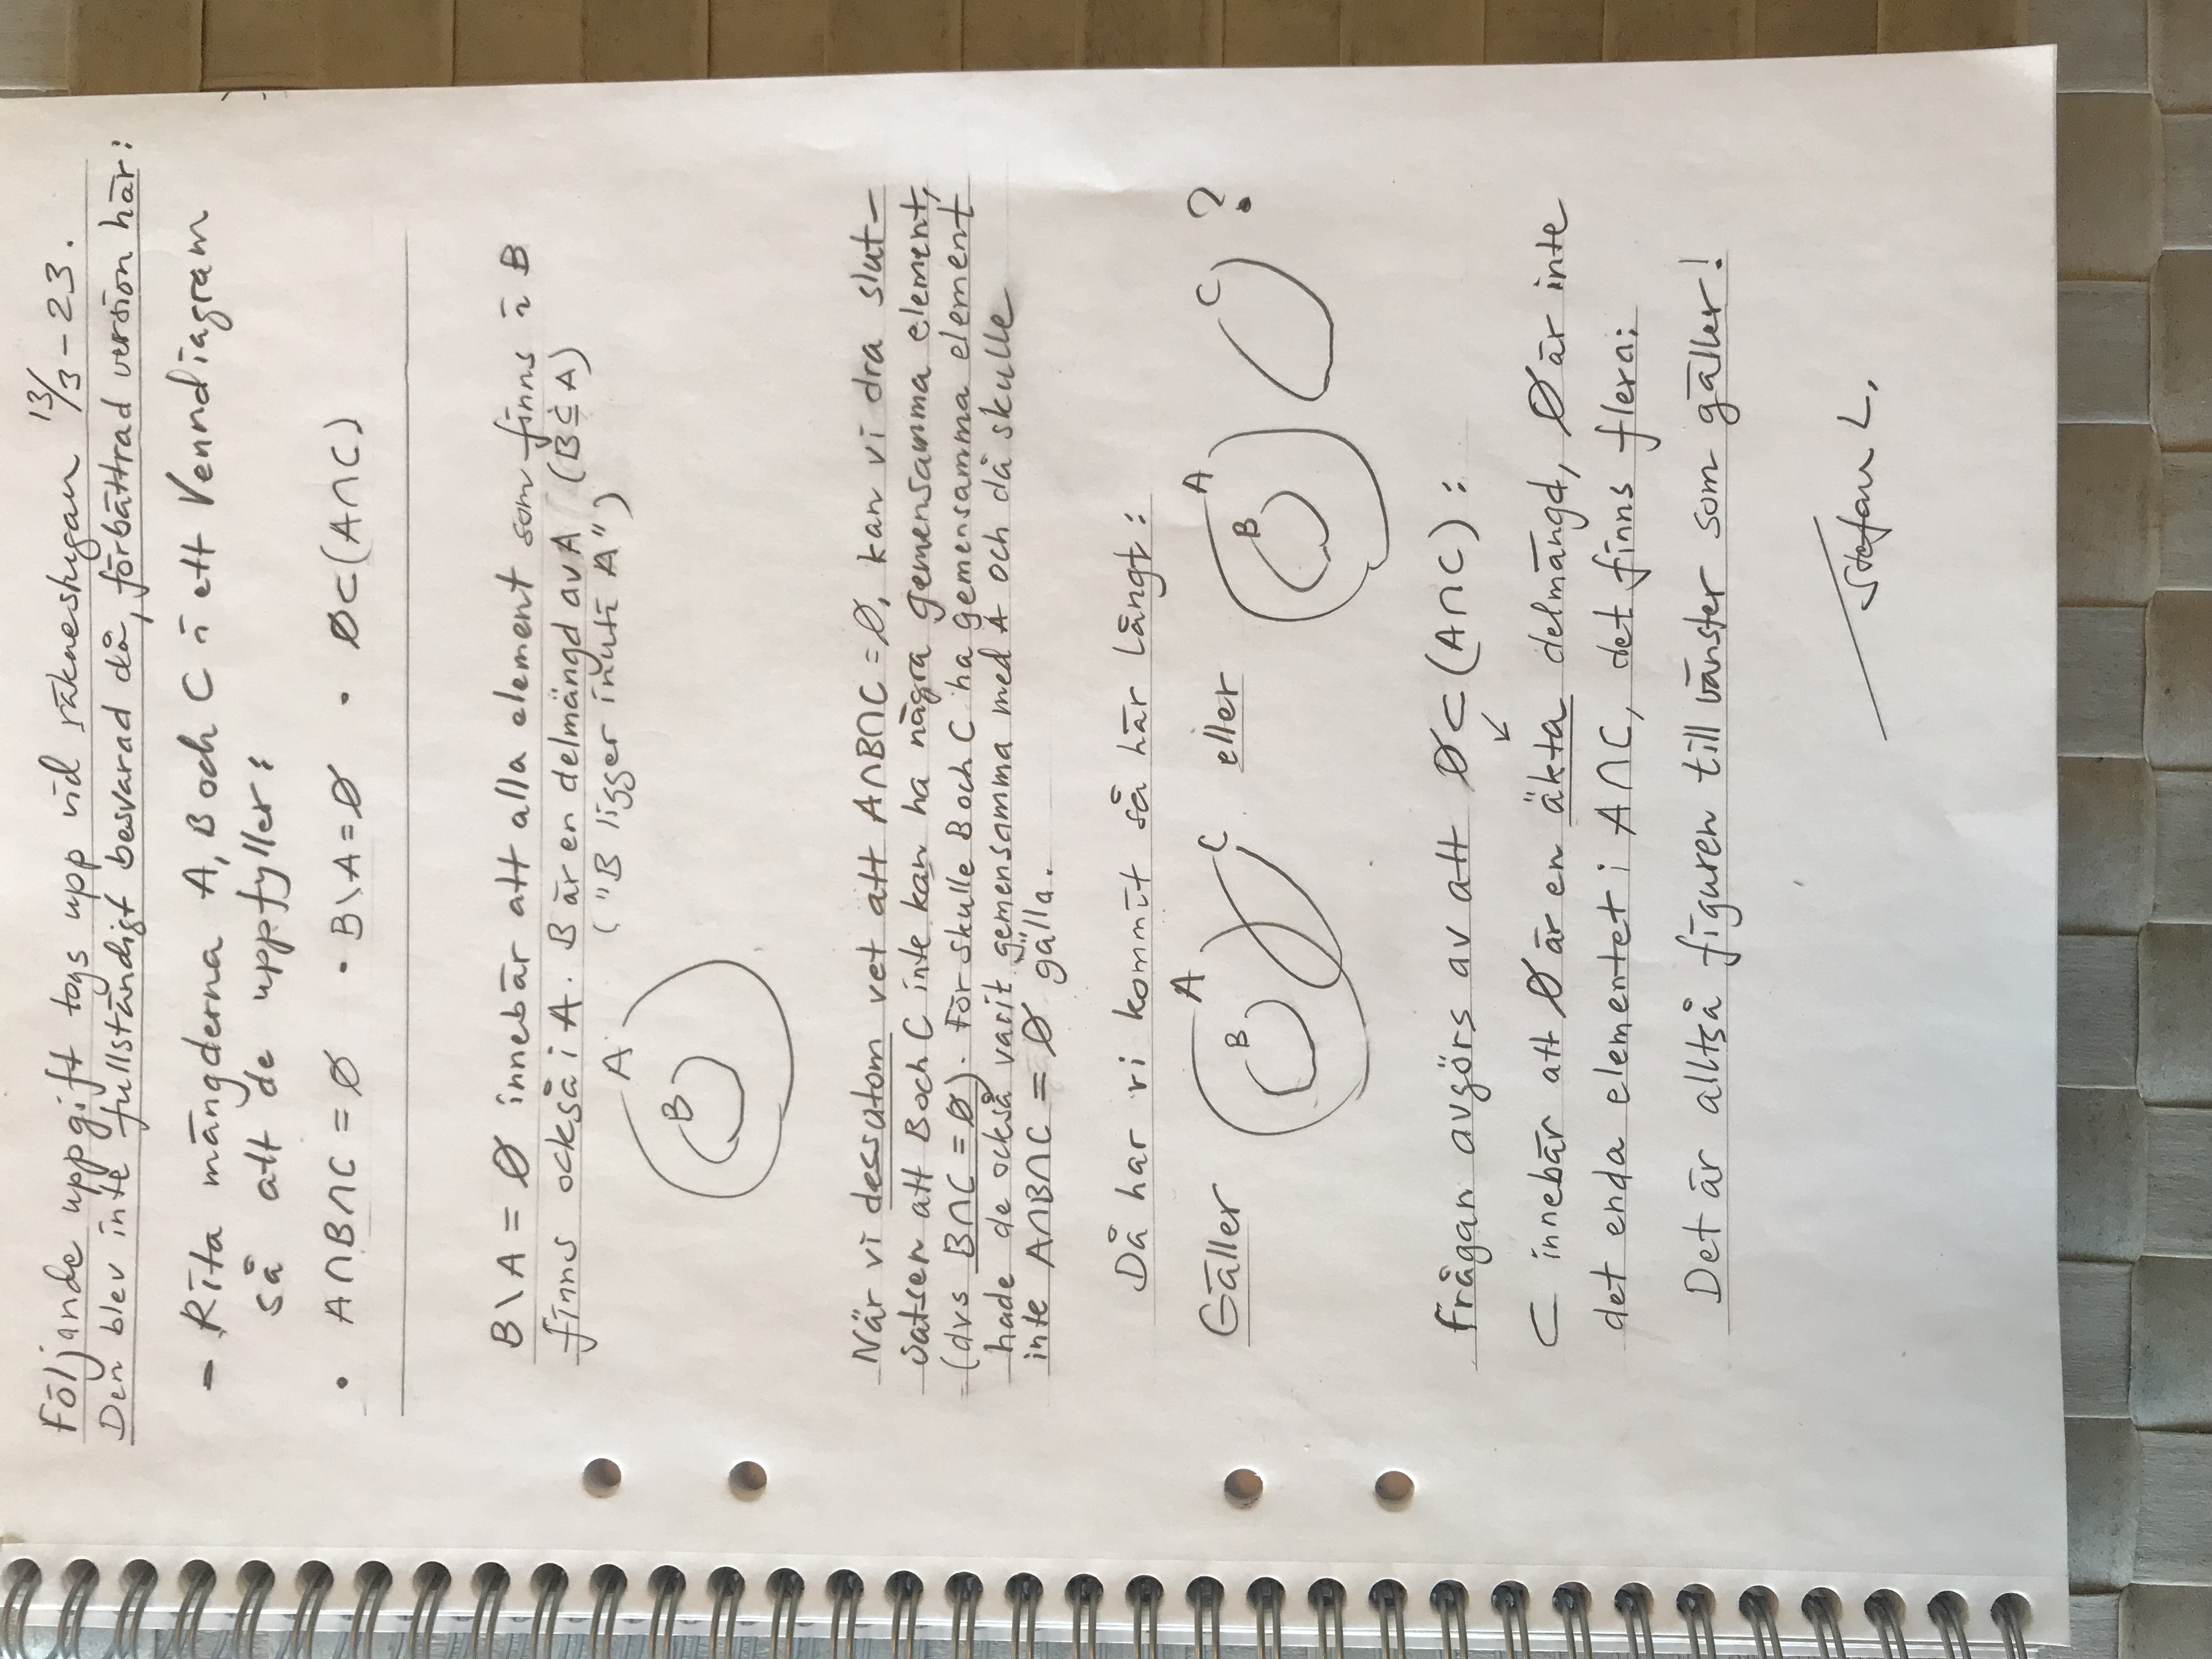 Följande uppgift togs upp vid räknestugan 13/3-23.
Den blev inte fullständigt besvarad då, förbättrad version här:
- Rita mängderna A, B och C i ett Venndiagram
så att de uppfyller:
• A∩B∩C = Ø • B\A = Ø • Ø⊂(A∩C)
B\A = Ø innebär att alla element som finns i B
finns också i A. B är en delmängd av A (B⊆A)
("B ligger inuti A")
A
B
När vi dessutom vet att A∩B∩C = Ø, kan vi dra slut-
satsen att B och C inte kan ha några gemensamma element,
(dvs B∩C = Ø). För skulle B och C ha gemensamma element
hade de också varit gemensamma med A och då skulle
inte A∩B∩C = Ø gälla.
Då har vi kommit så här långt:
Gäller A B C eller A B C ?
Frågan avgörs av att Ø⊂(A∩C):
⊂ innebär att Ø är en äkta delmängd, Ø är inte
det enda elementet i A∩C, det finns flera:
Det är alltså figuren till vänster som gäller!
Stefan L.